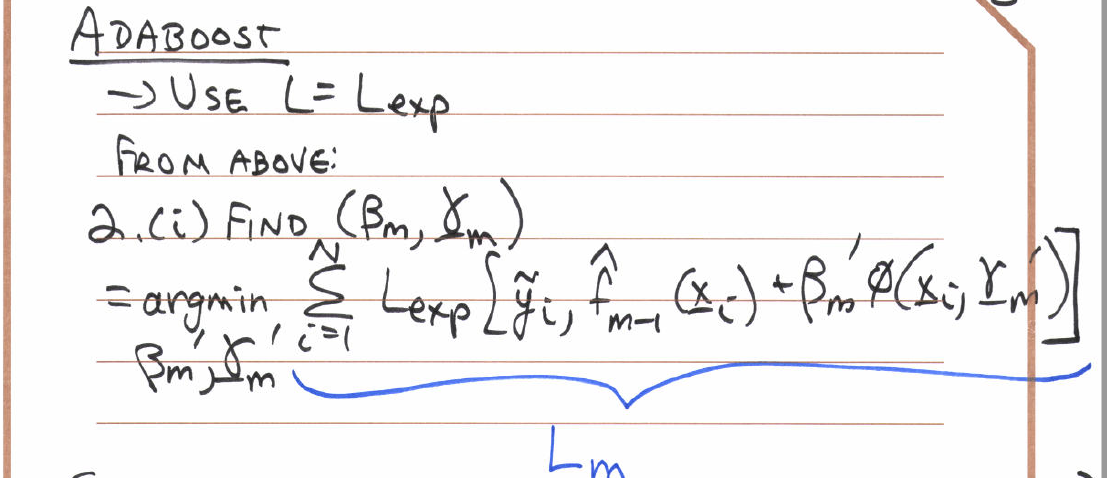 ADABOOST
→ USE L = Lexp
FROM ABOVE:
2.(i) FIND (βm, γm)
= argmin Σ_{i=1}^{N} Lexp[ỹi, f̂m-1(xi) + βm′ φ(xi; γm′)]
βm′, γm′
Lm